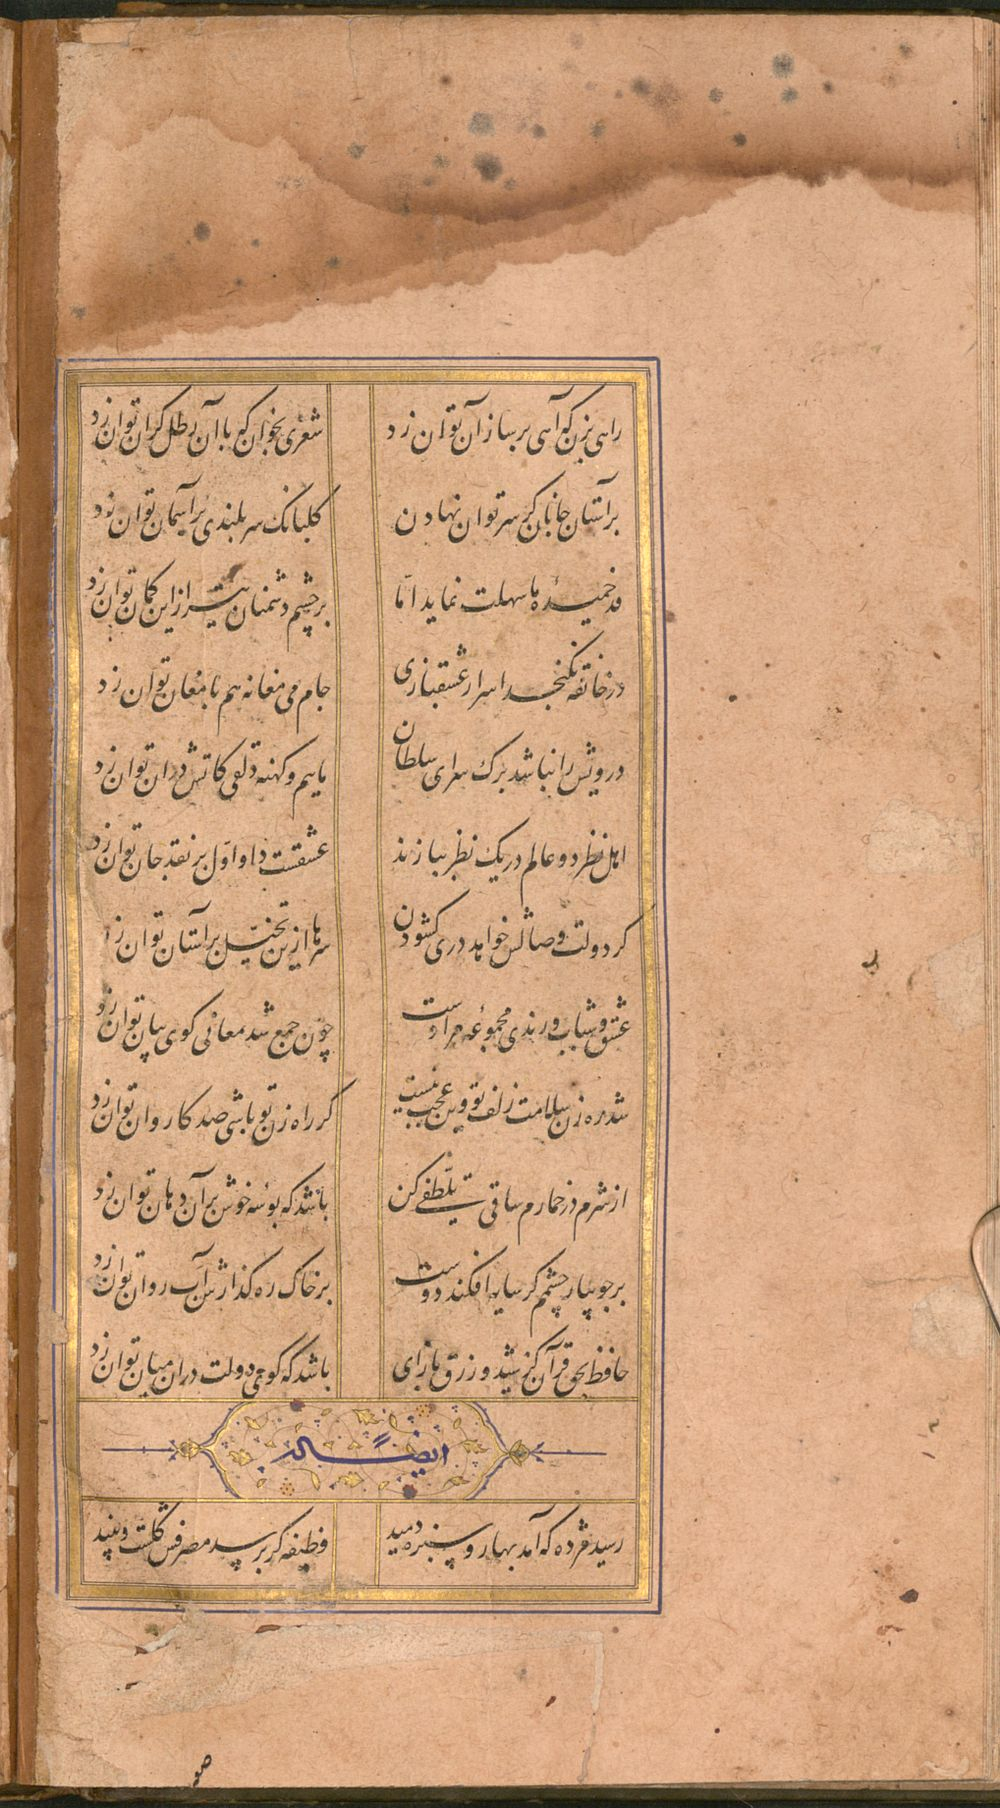 راهی بزن که آهی بر ساز آن توان زد شعری بخوان که با آن رطل کران توان زد
بر آستان جانان کر سر توان نهادن کلبانک سربلندی بر آسمان توان زد
قد خمیدهٔ ما سهلت نماید امّا بر چشم دشمنان تیر از این کمان توان زد
در خانقه نکنجد اسرار عشقبازی جام می مغانه هم با مغان توان زد
درویش را نباشد برک سرای سلطان ماییم و کهنه دلقی کاتش در آن توان زد
اهل نظر دو عالم در یک نظر ببازند عشقست داو اوّل بر نقد جان توان زد
کر دولت وصالش خواهد دری کشودن سرها ازین تخیّل بر آستان توان زد
عشق و شباب و رندی مجموعهٔ مرادست چون جمع شد معانی کوی بیان توان زد
شد ره زن سلامت زلف تو وین عجب نیست کر راه زن تو باشی صد کاروان توان زد
از شرم در خمارم ساقی تلطّفی کن باشد که بوسهٔ خوش بر آن دهان توان زد
بر جویبار چشمم کر سایه افکند دوست بر خاک ره کذارش آب روان توان زد
حافظ بحق قرآن کز شید و زرق باز ای باشد که کوی دولت در این میان توان زد
ایضاً له
رسید مژده که آمد بهار و سبزه دمید وظیفه کر برسد مصرفش کلست و نبید